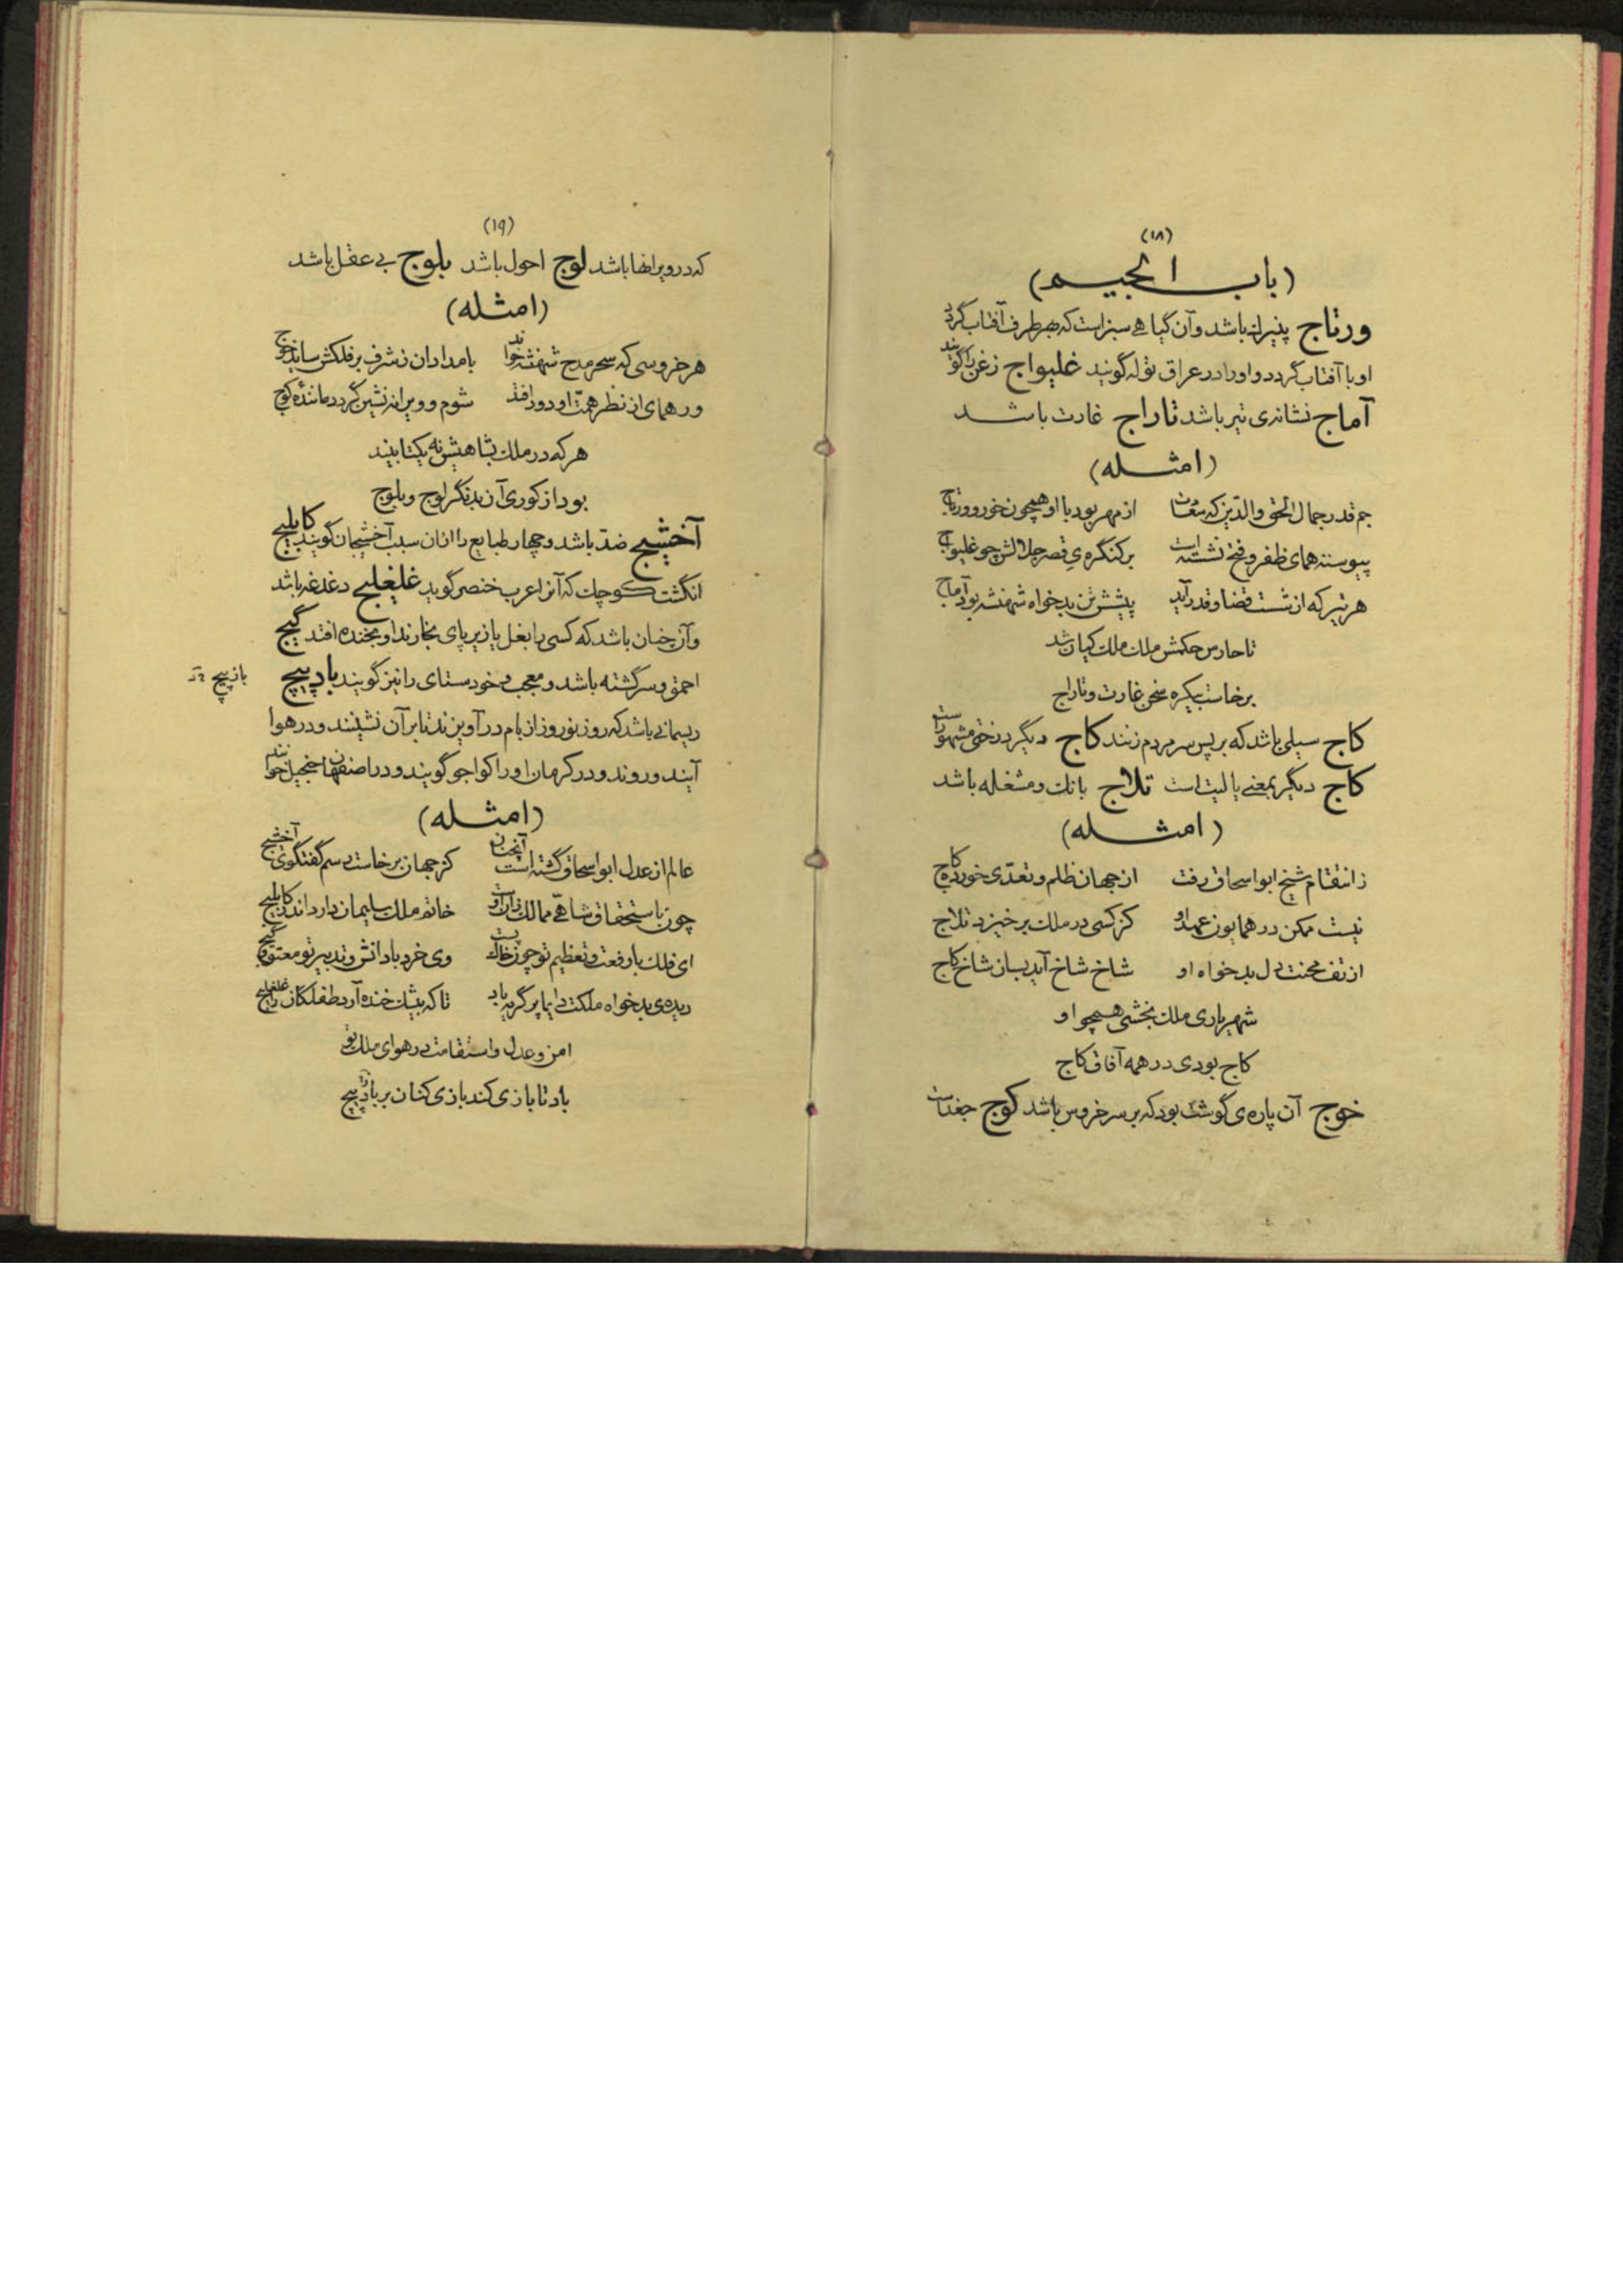 (۱۸)
(باب الجیم)
ورتاج پنیرانه باشد و آن گیاهی سبز است که بهر طرف آفتاب گردد
او با آفتاب گردد و او را در عراق توله گویند غلیواج زغن را گویند
آماج نشانه‌ی تیر باشد تاراج غارت باشد
(امثله)
جم قدر جمال الحق والدین که ز مغناث از مهر بود با او همچون خور و ورتاج
پیوسته همای ظفر و فتح نشسته است بر کنگره‌ی قصر جلالش چو غلیواج
هر تیر که از شست قضا و قدر آید پیشش تن بدخواه شهنشه بود آماج
تا حارس حکمش ملک ملک کیان شد
برخاست بیکره سخن غارت و تاراج
کاج سیلی باشد که بر پس سر مردم زنند کاج دیگر درختی مشهور است
کاج دیگر بمعنی یا لیت است تلاج بانک و مشغله باشد
(امثله)
ز انتقام شیخ ابو اسحاق رفت از جهان ظلم و تعدی خورده کاج
نیست ممکن در همایون عهد او کز کسی در ملک برخیزد تلاج
از تف محنت دل بدخواه او شاخ شاخ آید بسان شاخ کاج
شهریاری ملک بخشی همچو او
کاج بودی در همه آفاق کاج
خوج آن پاره‌ی گوشت بود که بر سر خروس باشد کوج جغد است
(۱۹)
که در ویرانها باشد لوج احول باشد بلوج بی عقل باشد
(امثله)
هر خروسی که سحر مدح شهنشه خواند بامدادان ز شرف بر فلکش ساید خوج
ور همای از نظر همت او دور افتد شوم و ویرانه نشین گردد ماننده کوج
هر که در ملک بشاهیش نه یکتا بیند
بود از کوری آن بدنگر لوج و بلوج
آخشیج ضد باشد و چهار طبایع را از آن سبب آخشیجان گویند کابلیج
انگشت کوچک که آنرا عرب خنصر گوید غلغلیج دغدغه باشد
و آن چنان باشد که کسی را بغل یا زیر پای بخارند او بخنده افتد گیج
احمق و سرگشته باشد و معجب و خودستای را نیز گویند باد پیچ
باز پیچ
ریسمانی باشد که روز نوروز از بام در آویزند تا بر آن نشینند و در هوا
آیند و روند و در کرمان او را کواجو گویند و در اصفهان جنجیل خوانند
(امثله)
عالم از عدل ابو اسحاق گشته است آنچنان کز جهان برخاست رسم گفتگوی آخشیج
چون باستحقاق شاهی ممالک زان او خاتم ملک سلیمان دارد اندر کابلیج
ای فلک با رفعت و تعظیم تو چون خاک پست وی خرد با دانش و تدبیر تو معتوه گیج
دیده‌ی بدخواه ملکت دایما پر گریه باد تا که بیشک خنده آرد طفلکان را غلغلیج
امن و عدل و استقامت در هوای ملک تو
باد تا بازی کند بازی کنان بر باد پیچ